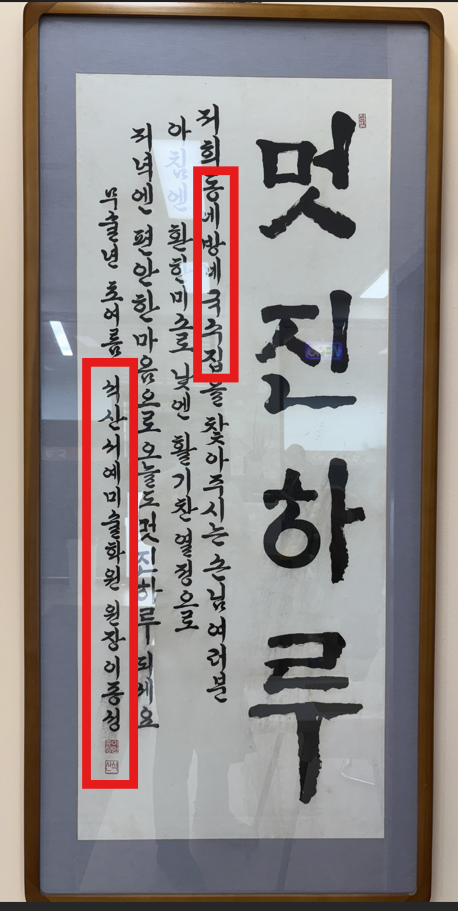 멋진하루
저희 동네방네국수집을 찾아주시는 손님 여러분
아침엔 환한미소로 낮엔 활기찬 열정으로
저녁엔 편안한 마음으로 오늘도 멋진하루 되세요
무술년 초여름 석산서예미술학원 원장 이종성